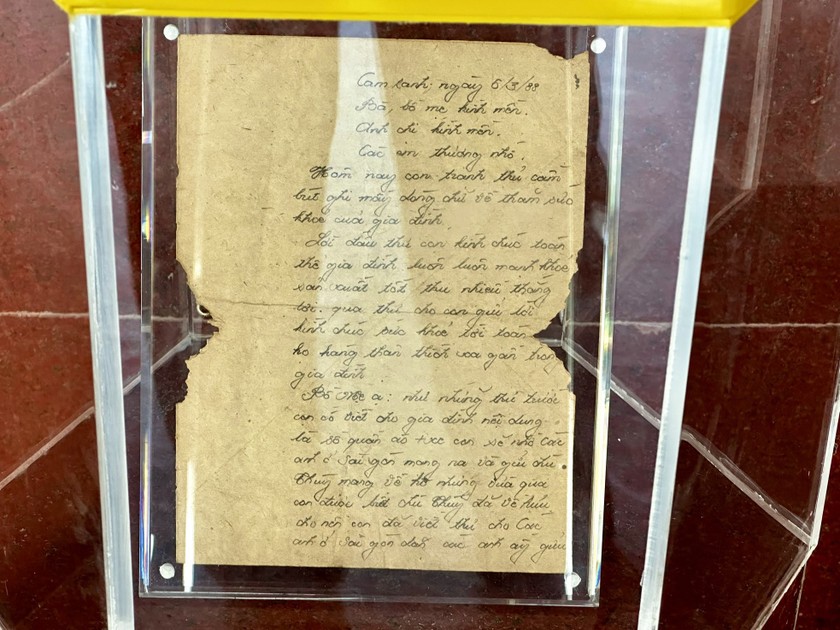 Cam ranh: ngày 6/3/88
Bà, bố mẹ kính mến.
Anh chị kính mến.
Các em thương nhớ.
Hôm nay con tranh thủ cầm
bút ghi mấy dòng chữ về thăm sức
khoẻ của gia đình.
Lời đầu thư con kính chúc toàn
thể gia đình luôn luôn mạnh khoẻ
sản xuất tốt thu nhiều thắng
lợi. qua thư cho con gửi lời
kính chúc sức khoẻ tới toàn
họ hàng thân thích xa gần trong
gia đình.
Bố Mẹ ạ: như những thư trước
con có viết cho gia đình nội dung
là số quần áo + xc con sẽ nhờ các
anh ở Sài gòn mang ra và gửi chú
Thuỷ mang về hộ nhưng vừa qua
con được biết chú Thuỷ đã về hưu
cho nên con đã viết thư cho Các
anh ở Sài gòn các anh ấy gửi